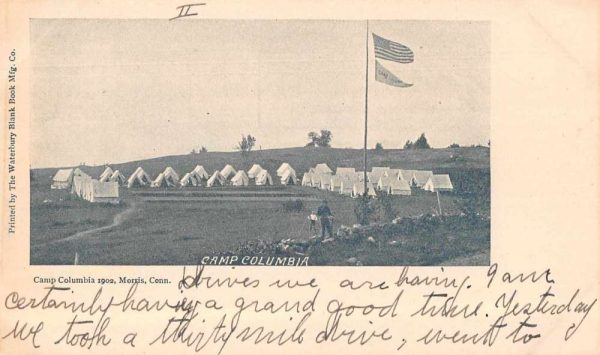 II
Printed by The Waterbury Blank Book Mfg. Co.
CAMP COLUMBIA
Camp Columbia 1902, Morris, Conn.
drives we are having. I am
certainly having a grand good time. Yesterday
we took a thirty mile drive, went to